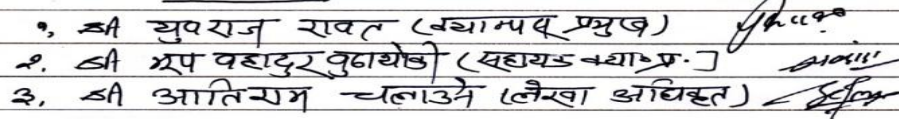 १, श्री युवराज रावत (क्याम्पस प्रमुख)
२. श्री भूप वहादुर वुढाथोकी (सहायक क्या० प्र.]
३. श्री आतिराम चलाउने (लेखा अधिकृत)